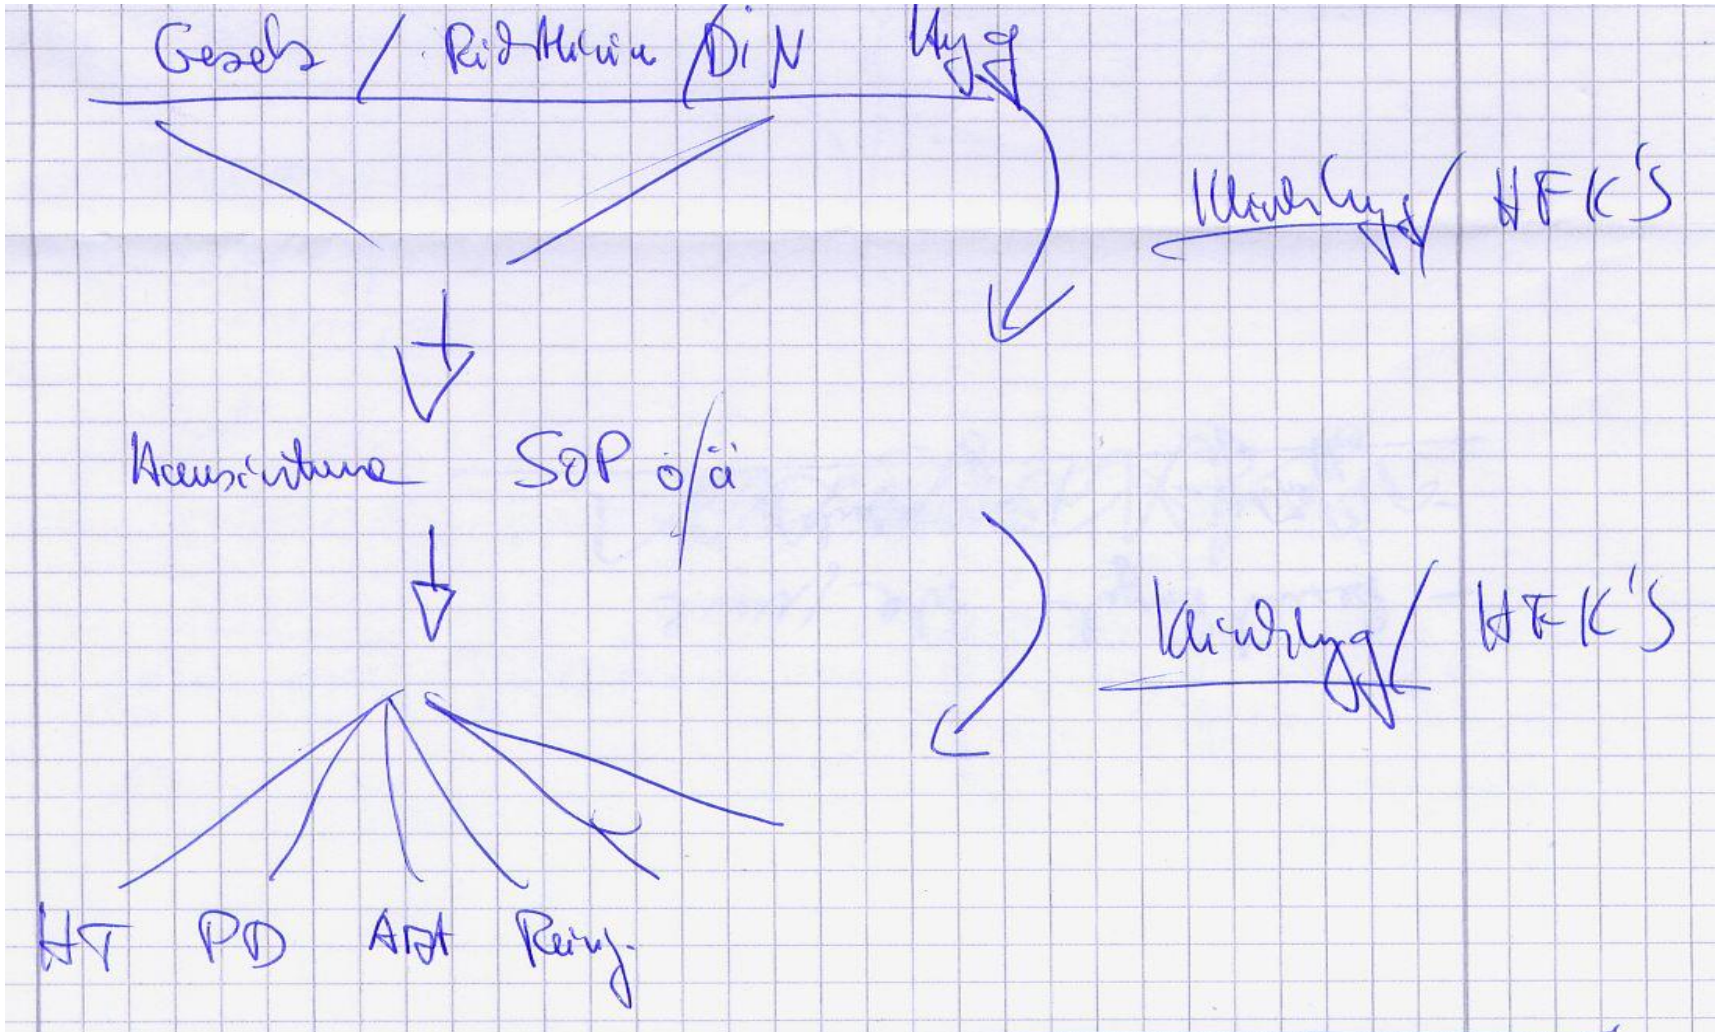 Gesetz / Richtlinien / DiN Hyg
Klinikhyg / HFK'S
Hausinterne SOP o/ä
Klinikhyg / HFK'S
HT PD Arzt Reinig.